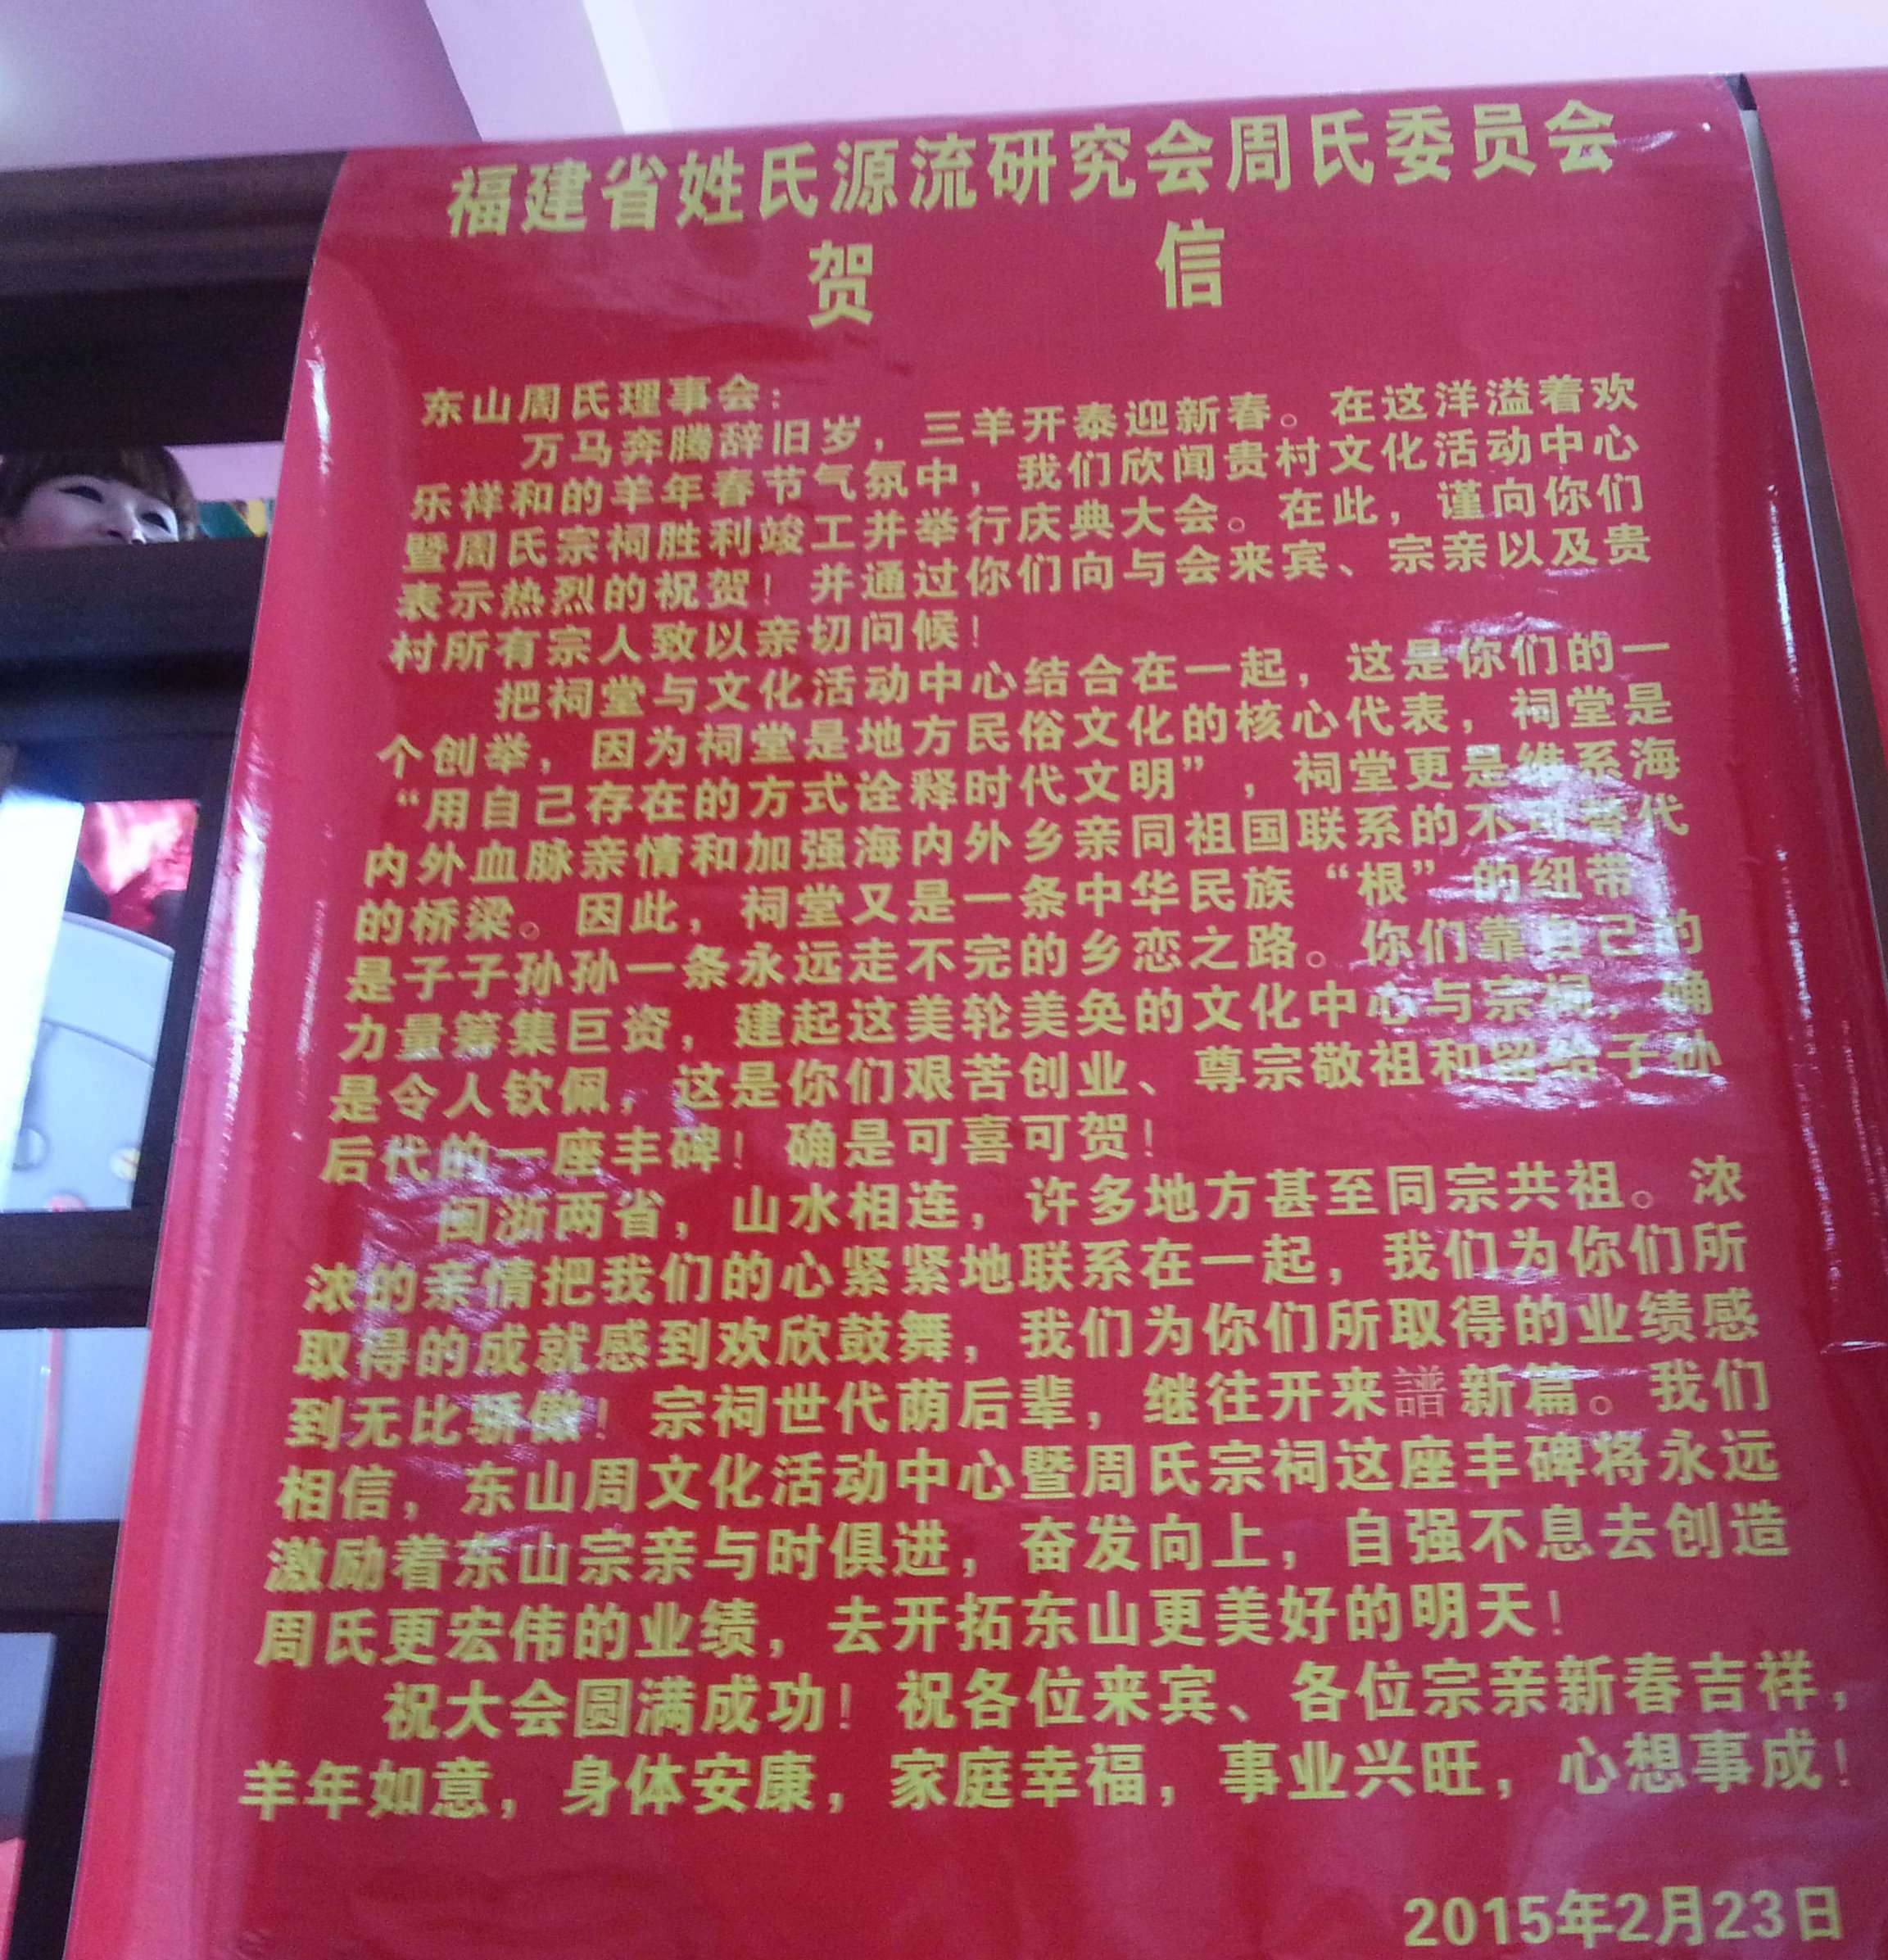 福建省姓氏源流研究会周氏委员会
贺 信
东山周氏理事会：
万马奔腾辞旧岁，三羊开泰迎新春。在这洋溢着欢
乐祥和的羊年春节气氛中，我们欣闻贵村文化活动中心
暨周氏宗祠胜利竣工并举行庆典大会。在此，谨向你们
表示热烈的祝贺！并通过你们向与会来宾、宗亲以及贵
村所有宗人致以亲切问候！
把祠堂与文化活动中心结合在一起，这是你们的一
个创举，因为祠堂是地方民俗文化的核心代表，祠堂是
“用自己存在的方式诠释时代文明”，祠堂更是维系海
内外血脉亲情和加强海内外乡亲同祖国联系的不可替代
的桥梁。因此，祠堂又是一条中华民族“根”的纽带，
是子子孙孙一条永远走不完的乡恋之路。你们靠自己的
力量筹集巨资，建起这美轮美奂的文化中心与宗祠，确
是令人钦佩，这是你们艰苦创业、尊宗敬祖和留给子孙
后代的一座丰碑！确是可喜可贺！
闽浙两省，山水相连，许多地方甚至同宗共祖。浓
浓的亲情把我们的心紧紧地联系在一起，我们为你们所
取得的成就感到欢欣鼓舞，我们为你们所取得的业绩感
到无比骄傲！宗祠世代荫后辈，继往开来譜新篇。我们
相信，东山周文化活动中心暨周氏宗祠这座丰碑将永远
激励着东山宗亲与时俱进，奋发向上，自强不息去创造
周氏更宏伟的业绩，去开拓东山更美好的明天！
祝大会圆满成功！祝各位来宾、各位宗亲新春吉祥，
羊年如意，身体安康，家庭幸福，事业兴旺，心想事成！
2015年2月23日